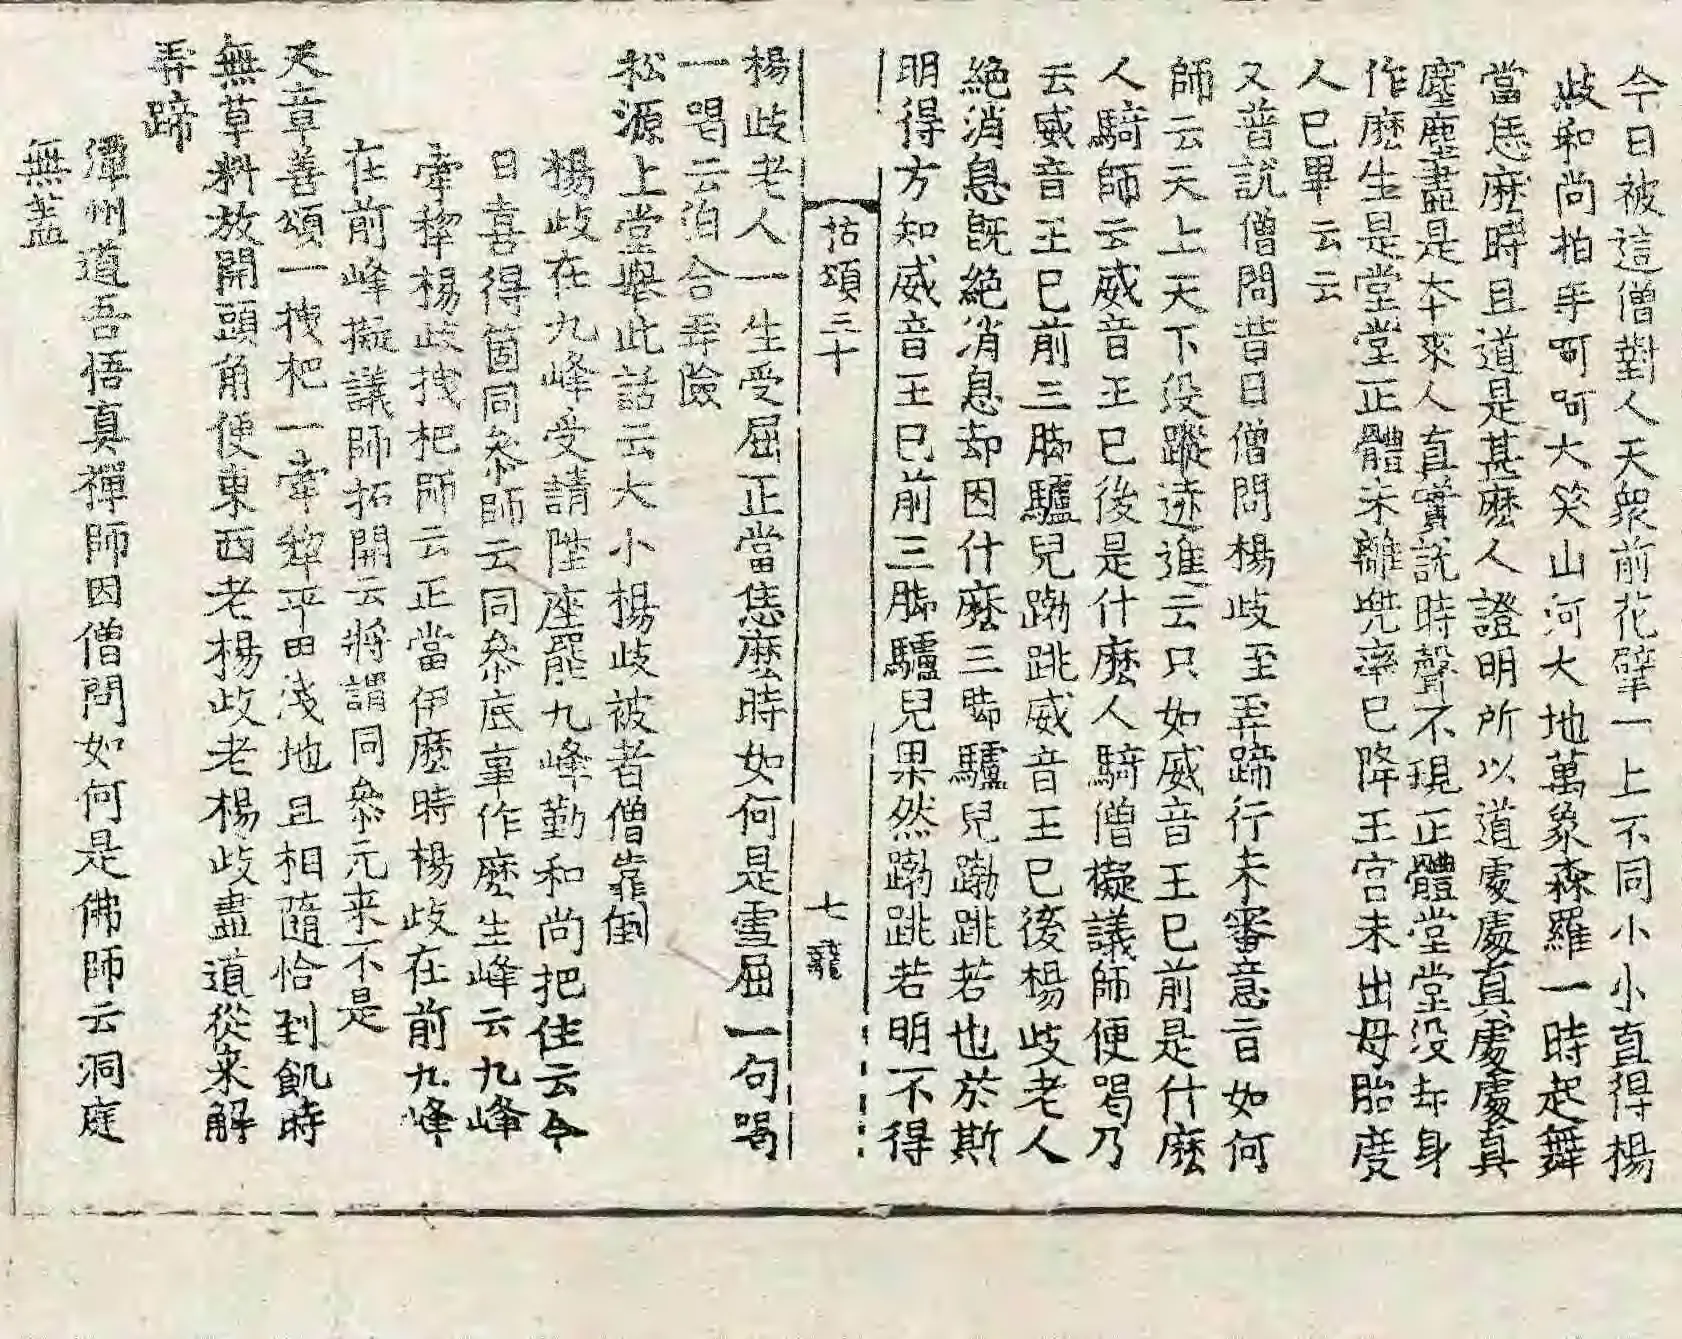 今日被這僧對人天衆前花擘一上不同小小直得楊
歧和尚拍手呵呵大笑山河大地萬象森羅一時起舞
當恁麽時且道是甚麽人證明所以道處處真處處真
塵塵盡是本来人真實說時聲不現正體堂堂没却身
作麽生是堂堂正體未離兜率已降王宮未出母胎度
人已畢云云
又普說僧問昔日僧問楊歧至弄蹄行未審意旨如何
師云天上天下没蹤迹進云只如威音王已前是什麽
人騎師云威音王已後是什麽人騎僧擬議師便喝乃
云威音王已前三脚驢兒𨁝跳威音王已後楊歧老人
絶消息旣絶絶消息却因什麽三脚驢兒𨁝跳若也於斯
明得方知威音王已前三脚驢兒果然𨁝跳若明不得
拈頌三十 七 龍
楊歧老人一生受屈正當恁麽時如何是雪屈一句喝
一喝云洎合弄險
松源上堂舉此話云大小楊歧被者僧靠倒
楊歧在九峰受請陞座罷九峰勤和尚把住云今
日喜得箇同叅師云同叅底事作麽生峰云九峰
牽犂楊歧拽杷師云正當伊麽時楊歧在前九峰
在前峰擬議師拓開云將謂同叅元来不是
天章善頌一拽杷一牽犂平田淺地且相隨恰到飢時
無草料放開頭角便東西老楊歧老楊歧盡道從来解
弄蹄
潭州道吾悟真禪師因僧問如何是佛師云洞庭
無蓋